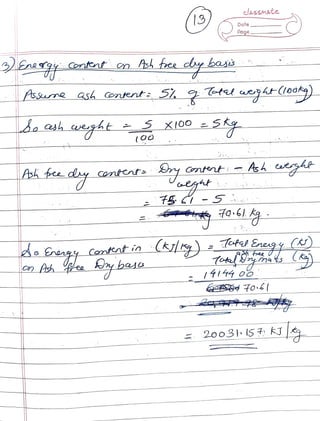 13
classmate
Date
Page
3) Energy content on Ash free dry basis
Assume ash content = 5% of Total weight (100kg)
So ash weight = 5/100 × 100 = 5 kg
Ash free dry content = Dry content weight - Ash weight
= 75.61 - 5
= 70.61 kg.
So Energy content in (kJ/kg) = Total Energy (kJ)
on Ash free Dry basis Total ash free Dry mass (kg)
= 1414400
70.61
= 20031.157 kJ/kg